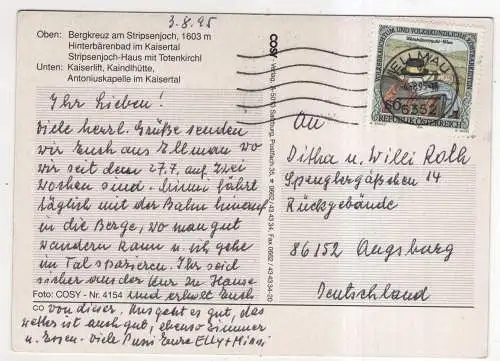 3.8.95
Oben: Bergkreuz am Stripsenjoch, 1603 m
Hinterbärenbad im Kaisertal
Stripsenjoch-Haus mit Totenkirchl
Unten: Kaiserlift, Kaindlhütte,
Antoniuskapelle im Kaisertal
Ihr Lieben!
Viele herzl. Grüße senden
wir Euch aus Ellmau wo
wir seit dem 27.7. auf zwei
Wochen sind. fährt
täglich mit der Bahn hinauf
in die Berge, wo man gut
wandern kann u. ich gehe
im Tal spazieren. Ihr seid
sicher aus der Kur zu Hause
Foto: COSY - Nr. 4154 und erholt Euch
CO von dieser. Uns geht es gut, das
Wetter ist auch gut, ebenso Zimmer
u. Essen. Viele Bussi Eure Elly + Missi
COSY Verlag A-5010 Salzburg, Postfach 35, 0662/43 43 34, Fax 0662 / 43 43 34-20
ELLMAU
6352
REPUBLIK ÖSTERREICH
An
Ditha u. Willi Roth
Spenglergäßchen 14
Rückgebäude
86152 Augsburg
Deutschland